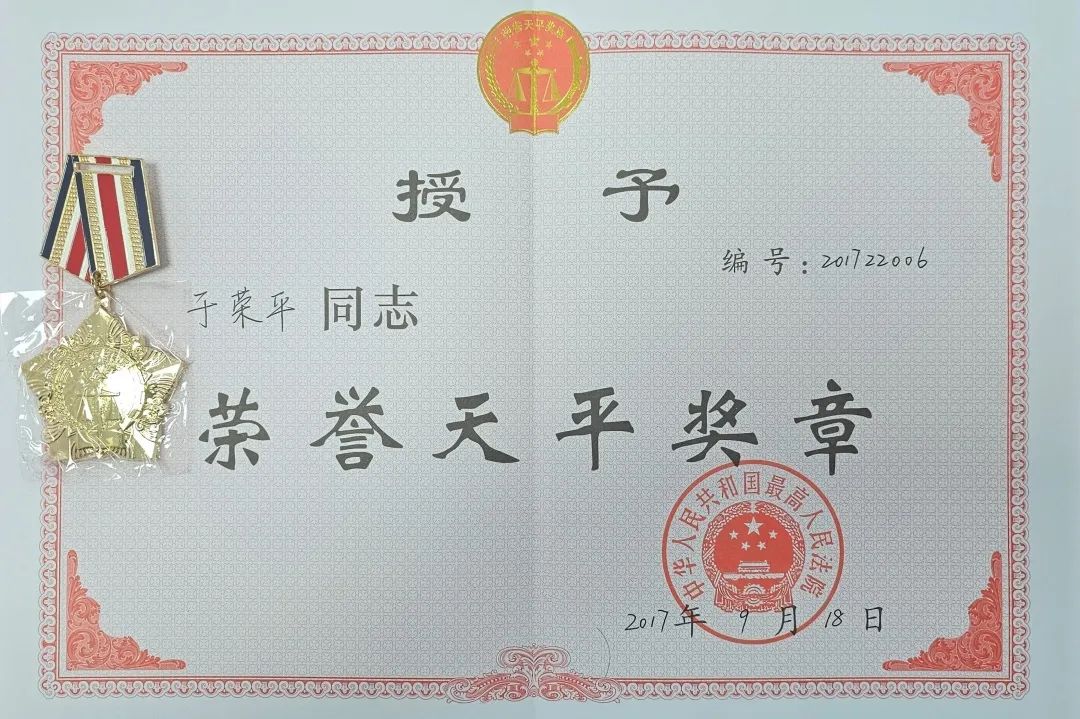 荣誉天平奖章
授予
编号：201722006
于荣平 同志
荣誉天平奖章
中华人民共和国最高人民法院
2017年9月18日